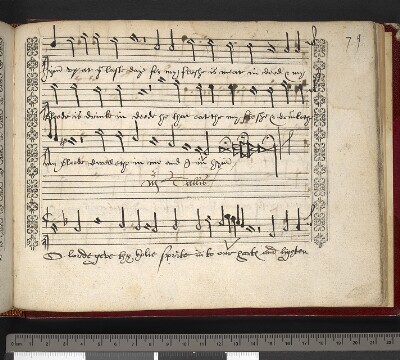 79
hym up at yͤ laste day for my fleshe is meat in deed & my
bloode is drinke in deede he that eateth my fleshe & drinketh
my bloode dwelleth in me and I in hym
mr Tallis
O lorde geve thy holie sprite into our harts and lighten